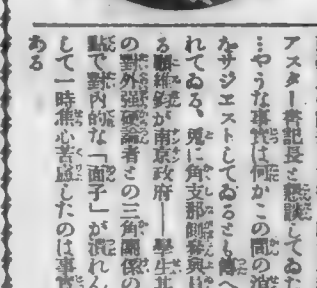 アスター書記長と懇談してゐた
…やうな事實は何かこの間の消
なサジエストしてゐるとし傳へ
れてゐる、兎に角支那側參與員
る顧維鈞が南京政府―學生其
の對外強硬論者との三角關係の
點で對內的な「面子」が潰れん
して一時焦心苦慮したのは事實
ある